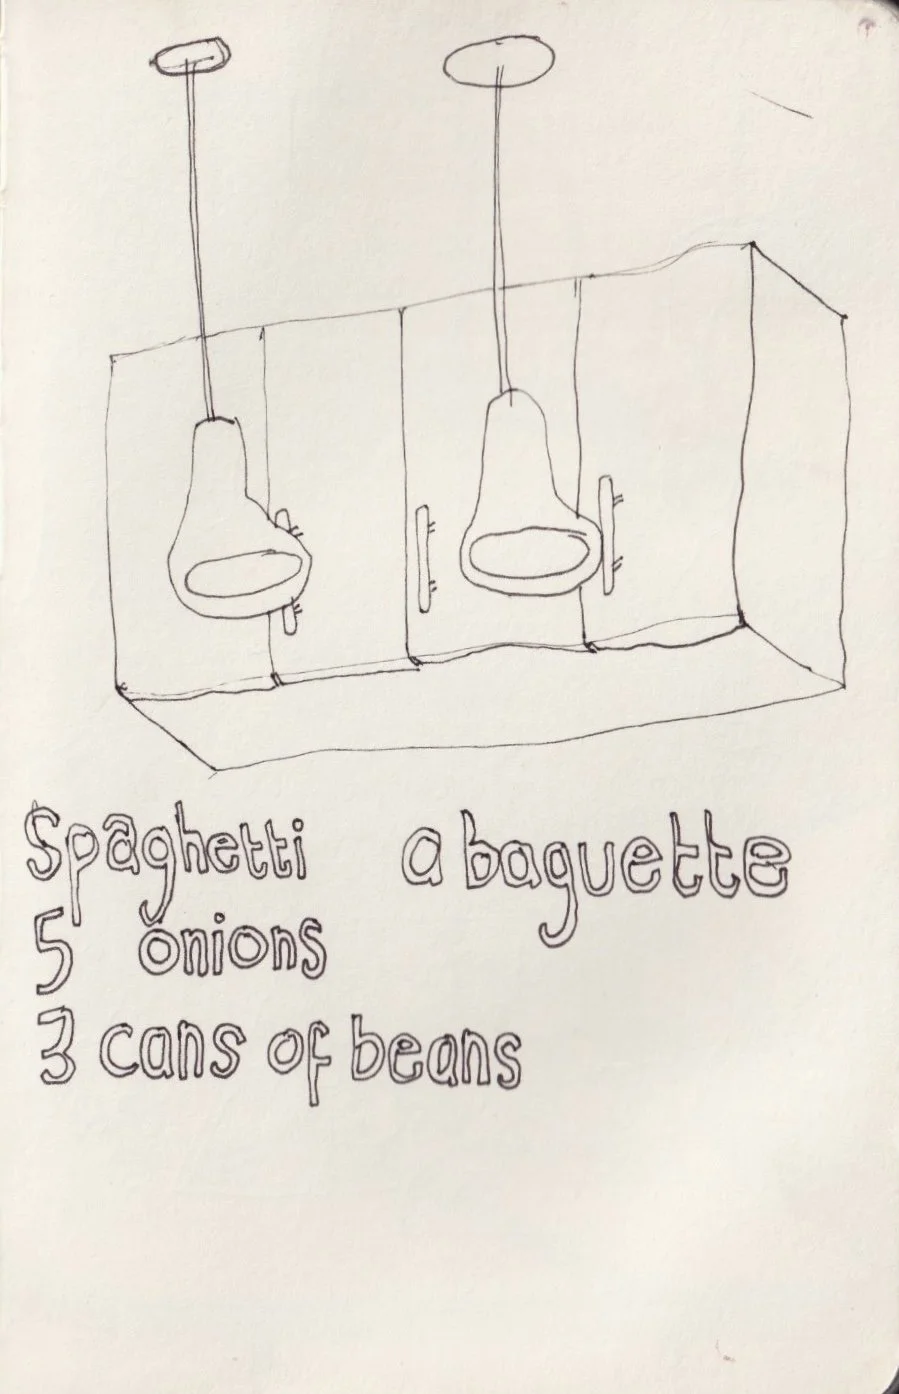 Spaghetti a baguette
5 onions
3 cans of beans